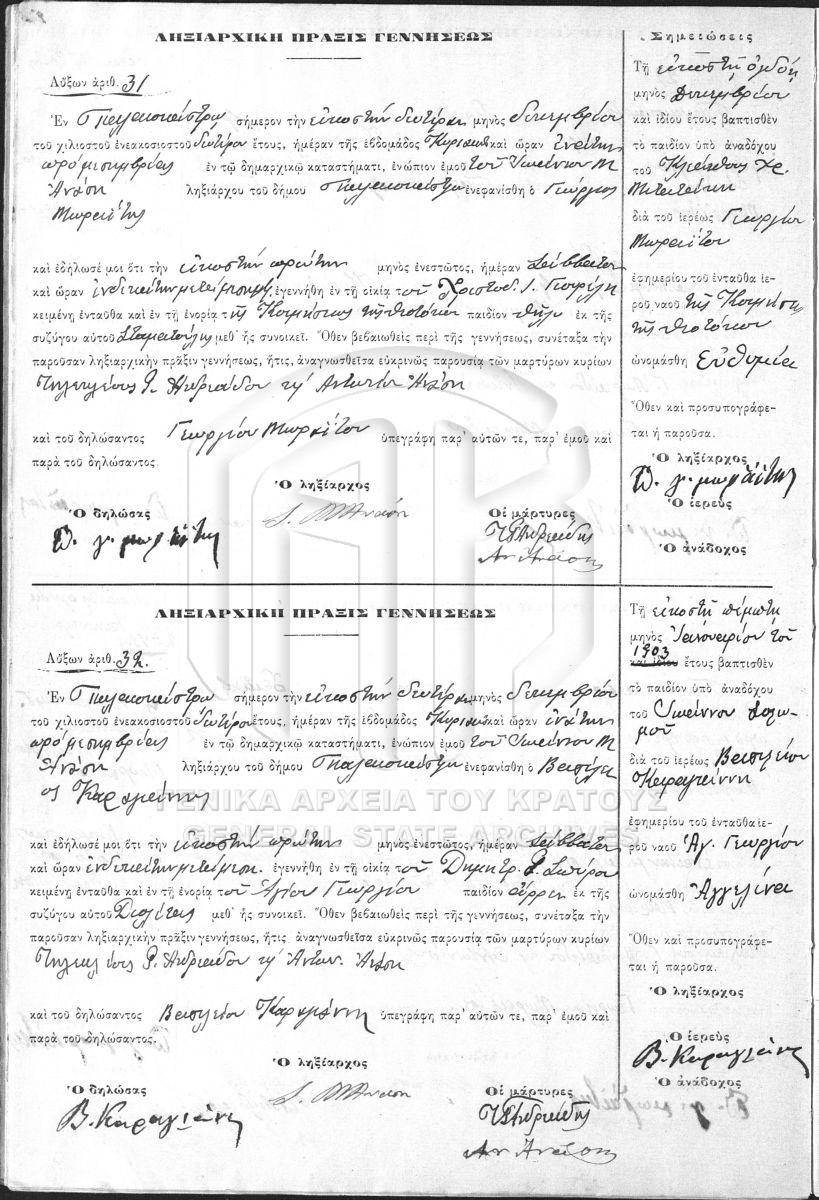 ΛΗΞΙΑΡΧΙΚΗ ΠΡΑΞΙΣ ΓΕΝΝΗΣΕΩΣ
Αὔξων ἀριθ. 31
Ἐν σήμερον τὴν εἰκοστὴν δευτέραν μηνὸς Δεκεμβρίου
τοῦ χιλιοστοῦ ἐνεακοσιοστοῦ δευτέρου ἔτους, ἡμέραν τῆς ἑβδομάδος Κυριακὴ καὶ ὥραν ἐνάτην
πρὸ μεσημβρίας ἐν τῷ δημαρχικῷ καταστήματι, ἐνώπιον ἐμοῦ τοῦ Ἰωάννου Μ
ληξιάρχου τοῦ δήμου ἐνεφανίσθη ὁ Γεώργιος
Μωραΐτης
καὶ ἐδήλωσέ μοι ὅτι τὴν εἰκοστὴν πρώτην μηνὸς ἐνεστῶτος, ἡμέραν Σάββατον
καὶ ὥραν ἐγεννήθη ἐν τῇ οἰκίᾳ τοῦ Χριστοδ.
κειμένῃ ἐνταῦθα καὶ ἐν τῇ ἐνορίᾳ τῆς Κοιμήσεως τῆς Θεοτόκου παιδίον θῆλυ ἐκ τῆς
συζύγου αὐτοῦ μεθ᾽ ἧς συνοικεῖ. Ὅθεν βεβαιωθεὶς περὶ τῆς γεννήσεως, συνέταξα τὴν
παροῦσαν ληξιαρχικὴν πρᾶξιν γεννήσεως, ἥτις, ἀναγνωσθεῖσα εὐκρινῶς παρουσίᾳ τῶν μαρτύρων κυρίων
Ἀνδρεάδου Ἀντωνίου
καὶ τοῦ δηλώσαντος Γεωργίου Μωραΐτου ὑπεγράφη παρ᾽ αὐτῶν τε, παρ᾽ ἐμοῦ καὶ
παρὰ τοῦ δηλώσαντος
Ὁ ληξίαρχος
Ὁ δηλώσας Οἱ μάρτυρες
γ. μωραΐτης Ἀνδρεάδης
Σημειώσεις
Τῇ εἰκοστῇ ὀγδόῃ
μηνὸς Δεκεμβρίου
καὶ ἰδίου ἔτους βαπτισθὲν
τὸ παιδίον ὑπὸ ἀναδόχου
τοῦ
διὰ τοῦ ἱερέως Γεωργίου
Μωραΐτου
ἐφημερίου τοῦ ἐνταῦθα ἱε-
ροῦ ναοῦ τῆς Κοιμήσεως
τῆς Θεοτόκου
ὠνομάσθη Εὐθυμία
Ὅθεν καὶ προσυπογράφε-
ται ἡ παροῦσα.
Ὁ ληξίαρχος
γ. μωραΐτης
Ὁ ἱερεὺς
Ὁ ἀνάδοχος
ΛΗΞΙΑΡΧΙΚΗ ΠΡΑΞΙΣ ΓΕΝΝΗΣΕΩΣ
Αὔξων ἀριθ. 32.
Ἐν σήμερον τὴν εἰκοστὴν δευτέραν μηνὸς Δεκεμβρίου
τοῦ χιλιοστοῦ ἐνεακοσιοστοῦ δευτέρου ἔτους, ἡμέραν τῆς ἑβδομάδος Κυριακὴ καὶ ὥραν ἐνάτην
πρὸ μεσημβρίας ἐν τῷ δημαρχικῷ καταστήματι, ἐνώπιον ἐμοῦ τοῦ Ἰωάννου Μ
ληξιάρχου τοῦ δήμου ἐνεφανίσθη ὁ Βασίλει
ος
ΓΕΝΙΚΑ ΑΡΧΕΙΑ ΤΟΥ ΚΡΑΤΟΥΣ
GENERAL STATE ARCHIVES
καὶ ἐδήλωσέ μοι ὅτι τὴν εἰκοστὴν πρώτην μηνὸς ἐνεστῶτος, ἡμέραν Σάββατον
καὶ ὥραν ἐγεννήθη ἐν τῇ οἰκίᾳ τοῦ Δημητρ.
κειμένῃ ἐνταῦθα καὶ ἐν τῇ ἐνορίᾳ τοῦ Ἁγίου Γεωργίου παιδίον ἄρρεν ἐκ τῆς
συζύγου αὐτοῦ μεθ᾽ ἧς συνοικεῖ. Ὅθεν βεβαιωθεὶς περὶ τῆς γεννήσεως, συνέταξα τὴν
παροῦσαν ληξιαρχικὴν πρᾶξιν γεννήσεως, ἥτις ἀναγνωσθεῖσα εὐκρινῶς παρουσίᾳ τῶν μαρτύρων κυρίων
Ἀνδρεάδου Ἀντων.
καὶ τοῦ δηλώσαντος Βασιλείου ὑπεγράφη παρ᾽ αὐτῶν τε, παρ᾽ ἐμοῦ καὶ
παρὰ τοῦ δηλώσαντος.
Ὁ ληξίαρχος
Ὁ δηλώσας Οἱ μάρτυρες
Β. Καραγιάνης Ἀνδρεάδης
Τῇ εἰκοστῇ πέμπτῃ
μηνὸς Ἰανουαρίου τοῦ
1903
καὶ ἰδίου ἔτους βαπτισθὲν
τὸ παιδίον ὑπὸ ἀναδόχου
τοῦ Ἰωάννου Σολω
μοῦ
διὰ τοῦ ἱερέως Βασιλείου
Καραγιάννη
ἐφημερίου τοῦ ἐνταῦθα ἱε-
ροῦ ναοῦ Ἁγ. Γεωργίου
ὠνομάσθη Ἀγγελίνα
Ὅθεν καὶ προσυπογράφε-
ται ἡ παροῦσα.
Ὁ ληξίαρχος
Ὁ ἱερεὺς
Β. Καραγιάνης
Ὁ ἀνάδοχος